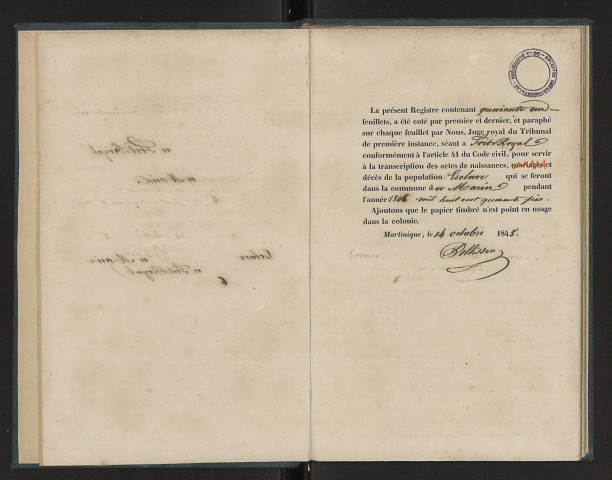 Le présent Registre contenant quarante un
feuillets, a été coté par premier et dernier, et paraphé
sur chaque feuillet par Nous, Juge royal du Tribunal
de première instance, séant à Fort-Royal
conformément à l'article 41 du Code civil, pour servir
à la transcription des actes de naissances, mariages et
décès de la population Esclave qui se feront
dans la commune du Marin pendant
l'année 1846 mil huit cent quarante six.
Ajoutons que le papier timbré n'est point en usage
dans la colonie.
Martinique, le 14 octobre 1845.
Pellisson